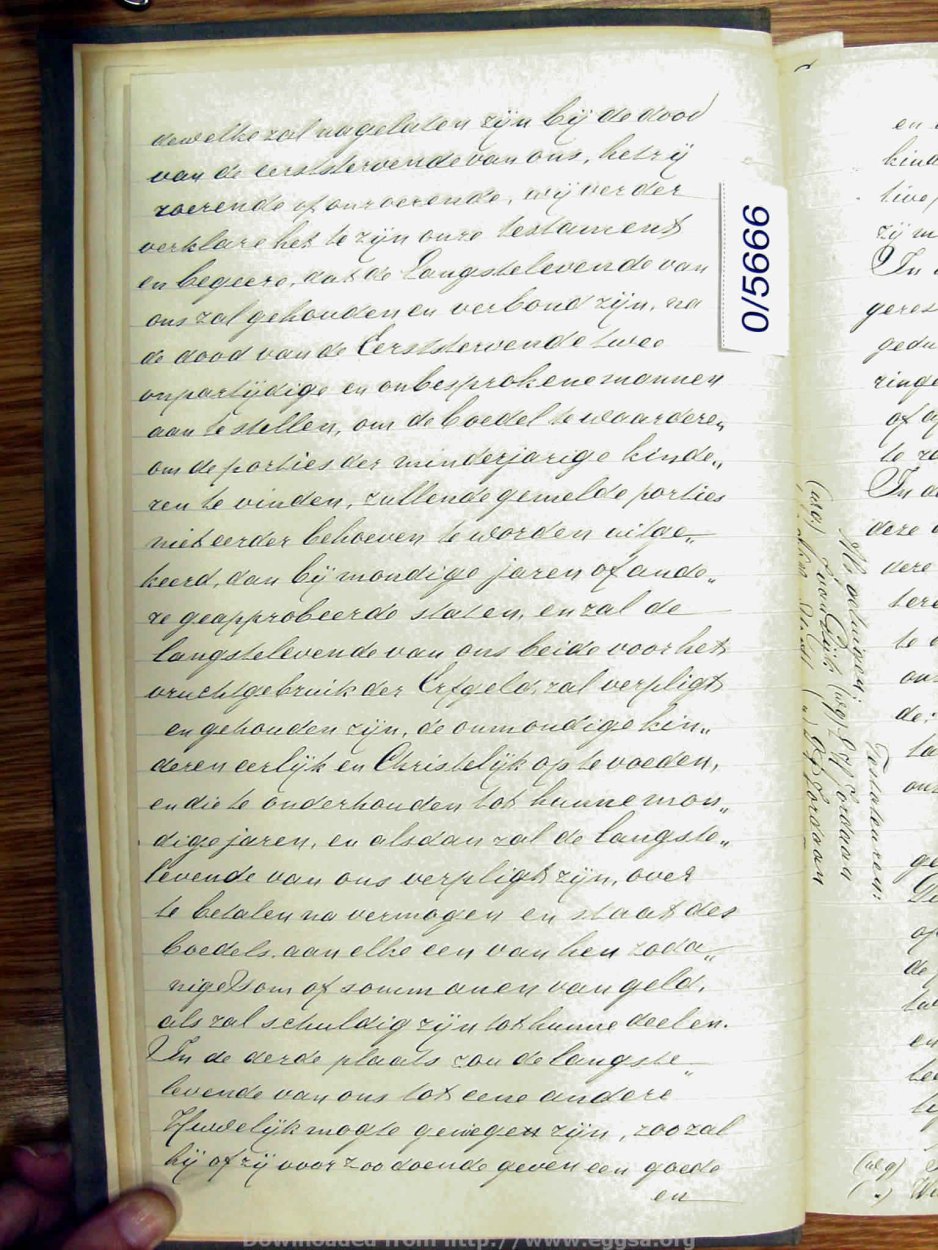 dewelke zal nagelaten zijn bij de dood
van de eerststervende van ons, hetzij
roerende of onroerende, wij verder
verklare het te zijn onze testament
en begeere, dat de Langstelevende van
ons zal gehouden en verbond zijn, na
de dood van de Eerststervende twee
onpartijdige en onbesprokene mannen
aan te stellen, om de boedel te waarderen
om de porties der minderjarige kinde„
ren te vinden, zullende gemelde porties
niet eerder behoeven te worden uitge„
keerd, dan bij mondige jaren of ande„
re geapprobeerde staten, en zal de
langstelevende van ons beide voor het
vruchtgebruik der Erfgeld, zal verpligt
en gehouden zijn, de onmondige kin„
deren eerlijk en Christelijk op te voeden,
en die te onderhouden tot hunne mon„
dige jaren, en alsdan zal de langste„
levende van ons verpligt zijn, over
te betalen na vermogen en staat des
boedels, aan elke een van hen zoda„
nige Som of sommanen van geld,
als zal schuldig zijn tot hunne deelen.
In de derde plaats zou de langste„
levende van ons tot eene andere
Huwelijk mogte genegen zijn, zoo zal
hij of zij voor zoo doende geven een goede
en
0/5666
Testateuren:
(wg) J H Jordaan
Jordaan
en
kind
zij m
In
gerez
gedu
ringe
of
te
In d
deze
dere
te
ons
de
ons
ge
of
de
en
(wg)
Downloaded from http://www.eggsa.org